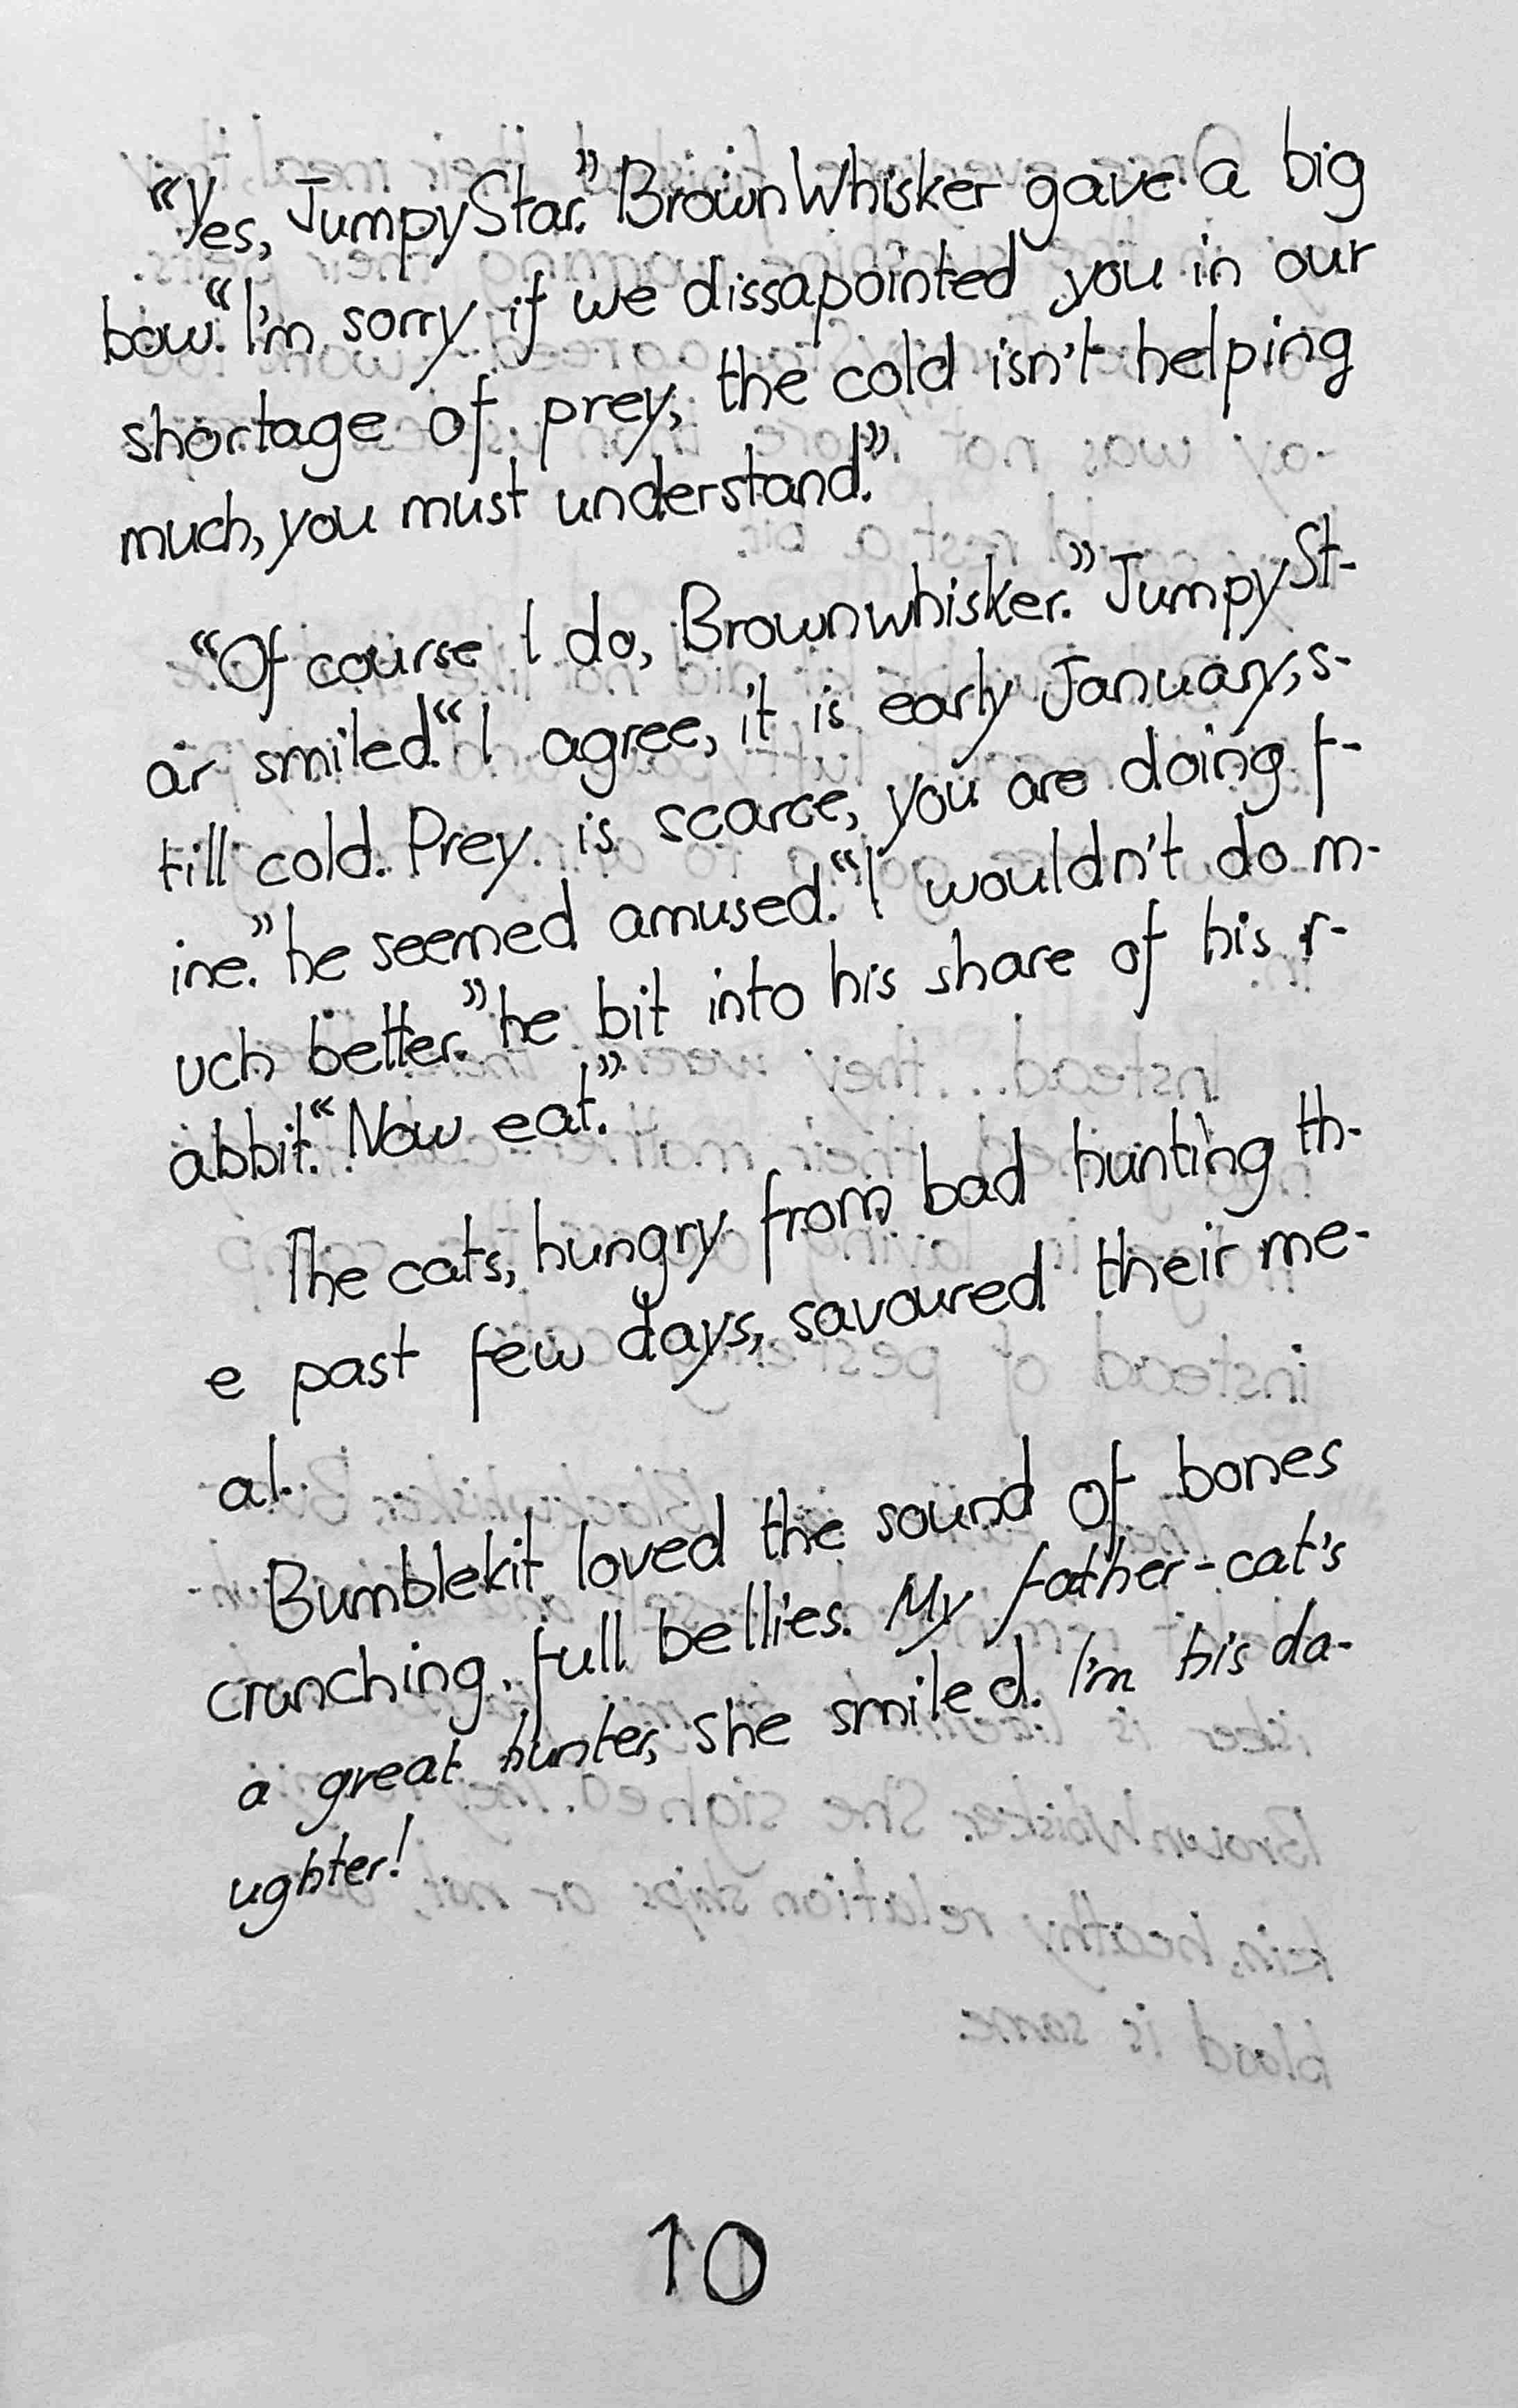 “Yes, JumpyStar.” BrownWhisker gave a big
bow. “I'm sorry if we dissapointed you in our
shortage of prey, the cold isn't helping
much, you must understand.”
“Of course I do, Brownwhisker.” JumpySt-
ar smiled. “I agree, it is early January, s-
till cold. Prey is scarce, you are doing f-
ine.” he seemed amused. “I wouldn't do m-
uch better.” he bit into his share of his r-
abbit. “Now eat.”
The cats, hungry from bad hunting th-
e past few days, savoured their me-
al.
Bumblekit loved the sound of bones
crunching, full bellies. My father-cat's
a great hunter, she smiled. I'm his da-
ughter!
10